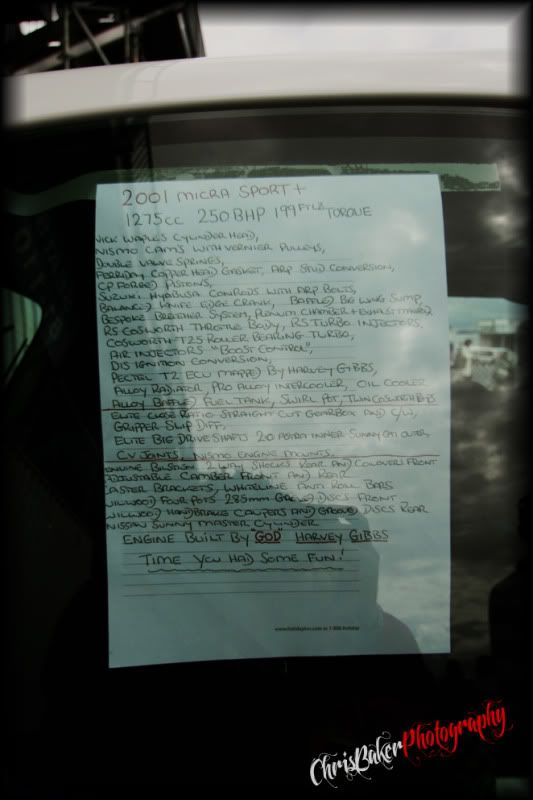 2001 MICRA SPORT +
1275cc 250 BHP 199 FTLB TORQUE
NICK WAPLES CYLINDER HEAD,
NISMO CAMS WITH VERNIER PULLEYS,
DOUBLE VALVE SPRINGS,
FERRIDAY COPPER HEAD GASKET, ARP STUD CONVERSION,
CP FORGED PISTONS,
SUZUKI HYABUSA CONRODS WITH ARP BOLTS,
BALANCED KNIFE EDGE CRANK, BAFFLED BIG WING SUMP,
BESPOKE BREATHER SYSTEM, PLENUM CHAMBER + EXHAUST MANIFOLD
RS COSWORTH THROTTLE BODY, RS TURBO INJECTORS.
COSWORTH T25 ROLLER BEARING TURBO,
AIR INJECTORS "BOOST CONTROL",
DIS IGNITION CONVERSION,
PECTEL T2 ECU MAPPED BY HARVEY GIBBS,
ALLOY RADIATOR, PRO ALLOY INTERCOOLER, OIL COOLER
ALLOY BAFFLED FUEL TANK, SWIRL POT, TWIN COSWORTH
ELITE CLOSE RATIO STRAIGHT CUT GEARBOX AND C/W,
GRIPPER SLIP DIFF,
ELITE BIG DRIVE SHAFTS 20 ASTRA INNER SUNNY GTI OUTER,
CV JOINTS, NISMO ENGINE MOUNTS.
GENUINE BILSTEIN 2 WAY SHOCKS REAR AND COILOVERS FRONT
ADJUSTABLE CAMBER FRONT AND REAR
CASTER BRACKETS, WHITELINE ANTI ROLL BARS
WILWOOD FOUR POTS 285mm GROOVED DISCS FRONT
WILWOOD HANDBRAKE CALIPERS AND GROOVED DISCS REAR
NISSAN SUNNY MASTER CYLINDER
ENGINE BUILT BY "GOD" HARVEY GIBBS
TIME YOU HAD SOME FUN!
ChrisBakerPhotography